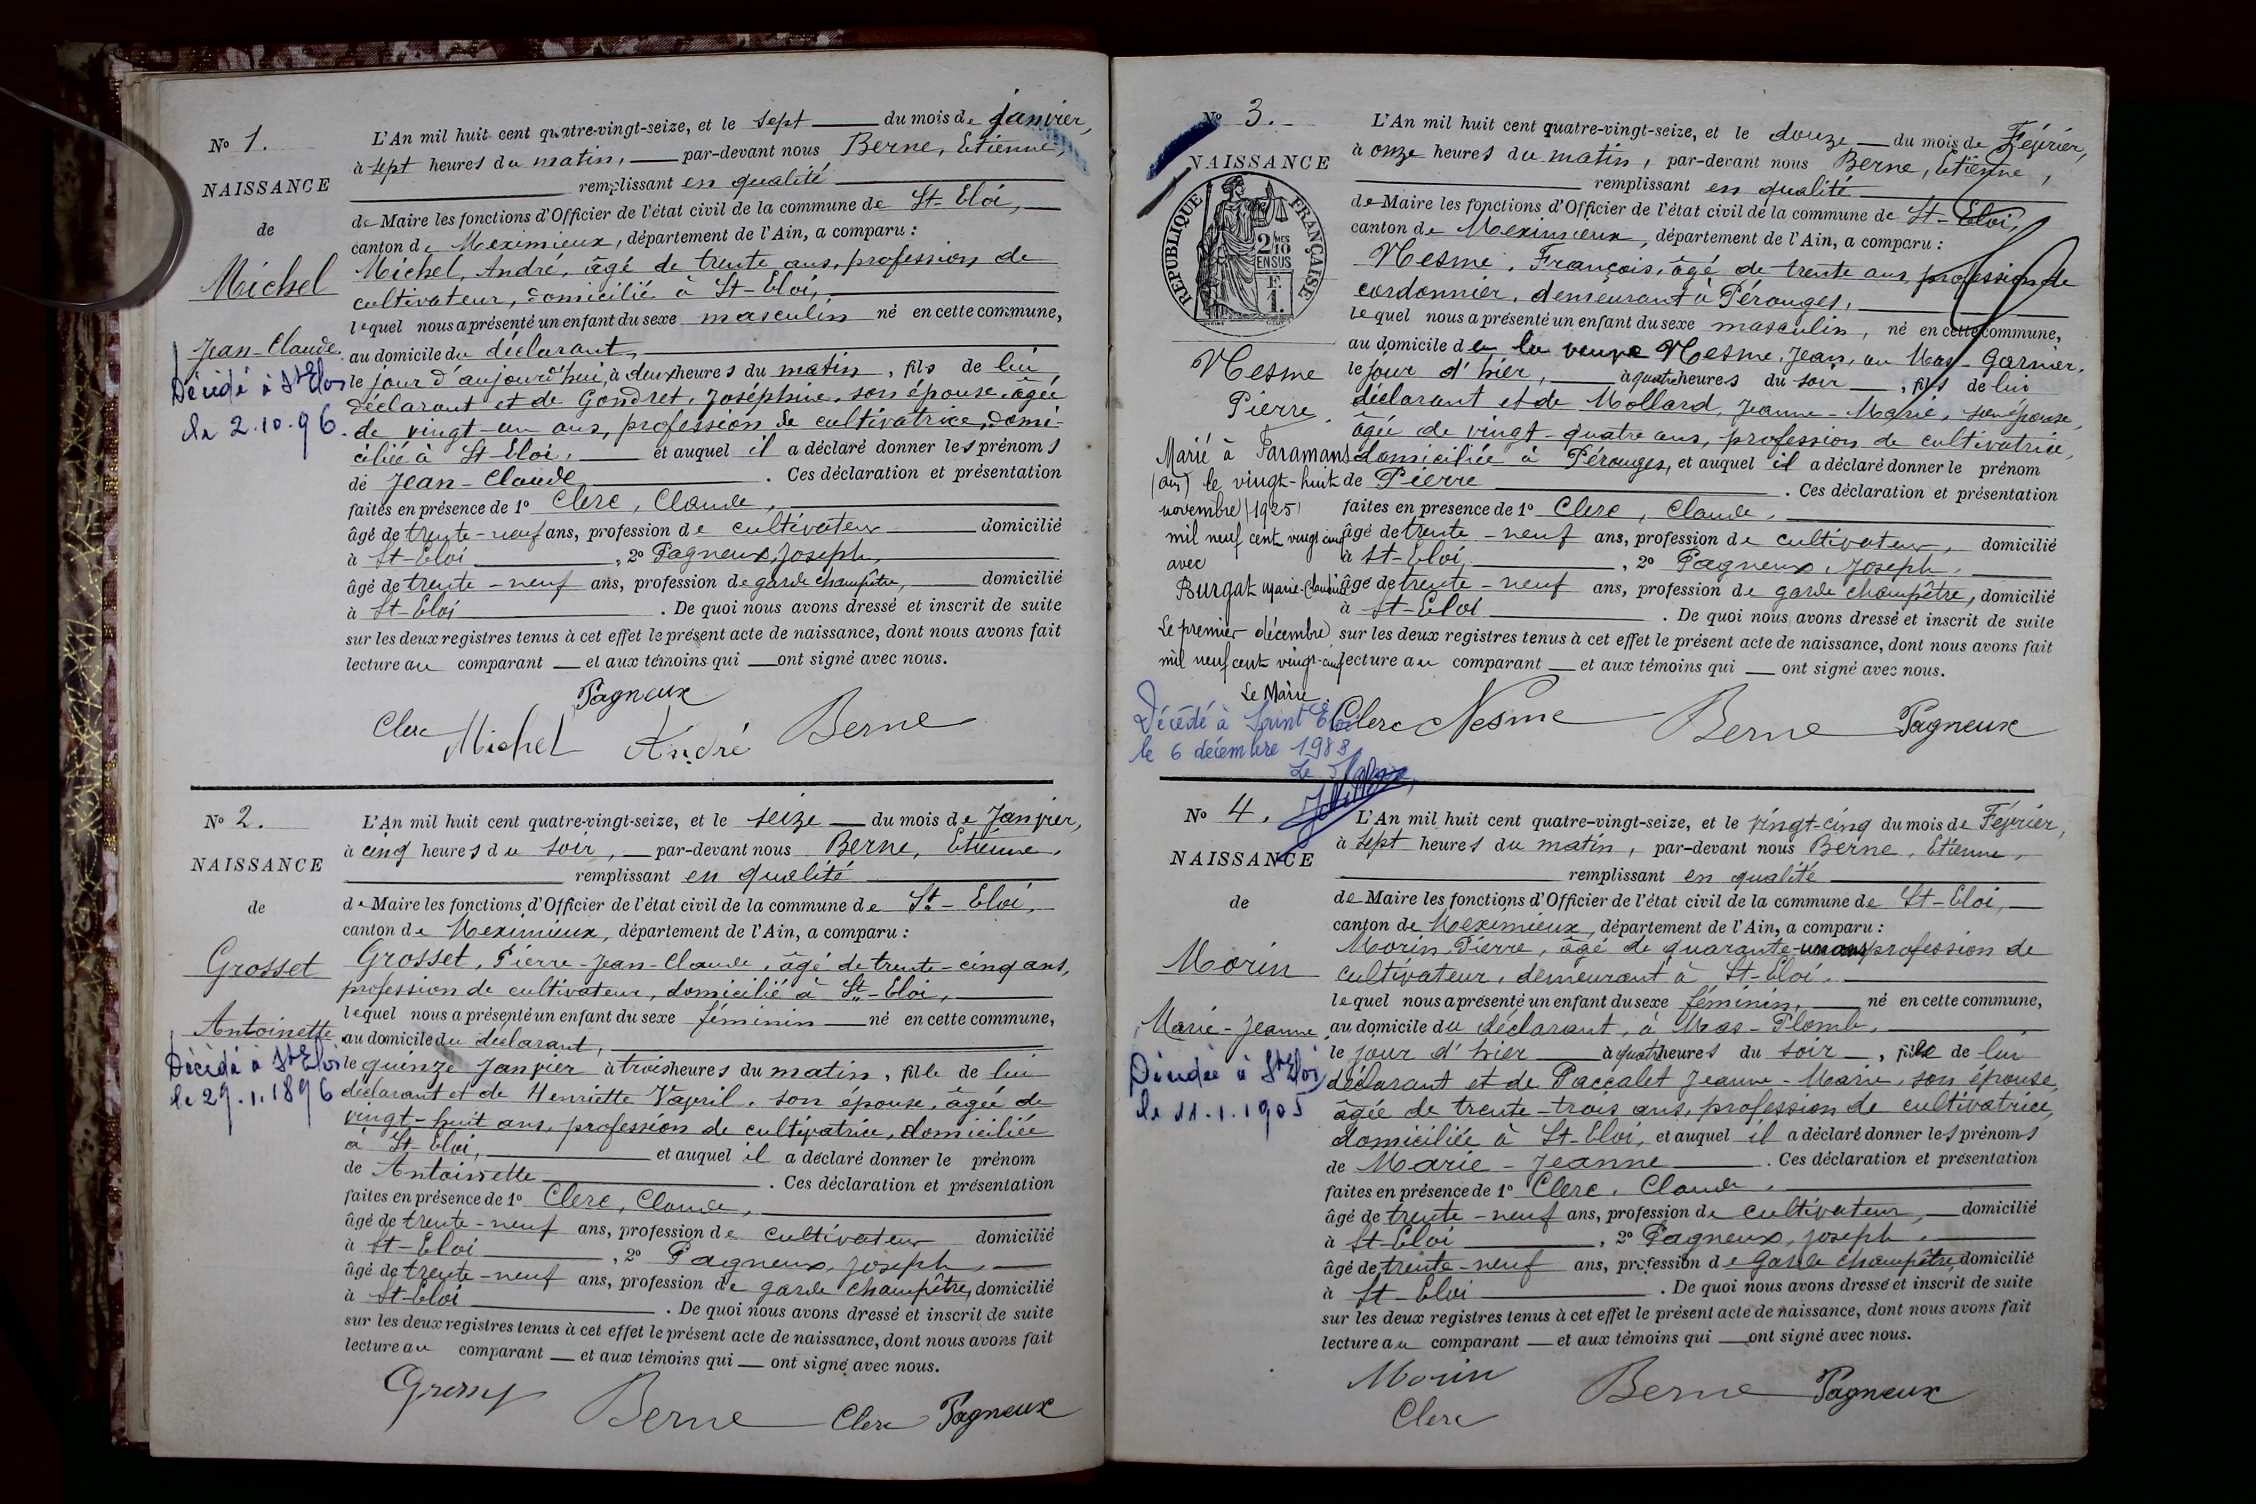 No 1.
NAISSANCE
de
Michel
Jean-Claude
Décédé à St Eloi
le 2.10.96.
L'An mil huit cent quatre-vingt-seize, et le sept du mois de janvier,
à sept heures du matin, par-devant nous Berne, Etienne,
remplissant en qualité
de Maire les fonctions d'Officier de l'état civil de la commune de St-Eloi,
canton de Meximieux, département de l'Ain, a comparu :
Michel, André, âgé de trente ans, profession de
cultivateur, domicilié à St-Eloi,
lequel nous a présenté un enfant du sexe masculin né en cette commune,
au domicile du déclarant,
le jour d'aujourd'hui, à deux heures du matin, fils de lui
déclarant et de Gondret, Joséphine, son épouse, âgée
de vingt-un ans, profession de cultivatrice, domi-
ciliée à St-Eloi, et auquel il a déclaré donner les prénoms
de Jean-Claude . Ces déclaration et présentation
faites en présence de 1o Clerc, Claude,
âgé de trente-neuf ans, profession de cultivateur domicilié
à St-Eloi , 2o Pagneux, Joseph,
âgé de trente-neuf ans, profession de garde champêtre, domicilié
à St-Eloi . De quoi nous avons dressé et inscrit de suite
sur les deux registres tenus à cet effet le présent acte de naissance, dont nous avons fait
lecture au comparant et aux témoins qui ont signé avec nous.
Pagneux
Clerc Michel André Berne
No 2.
NAISSANCE
de
Grosset
Antoinette
Décédé à St Eloi
le 29.1.1896
L'An mil huit cent quatre-vingt-seize, et le seize du mois de Janvier,
à cinq heures du soir, par-devant nous Berne, Etienne,
remplissant en qualité
de Maire les fonctions d'Officier de l'état civil de la commune de St-Eloi,
canton de Meximieux, département de l'Ain, a comparu :
Grosset, Pierre-Jean-Claude, âgé de trente-cinq ans,
profession de cultivateur, domicilié à St-Eloi,
lequel nous a présenté un enfant du sexe féminin né en cette commune,
au domicile du déclarant,
le quinze Janvier à trois heures du matin, fille de lui
déclarant et de Henriette Vavril, son épouse, âgée de
vingt-huit ans, profession de cultivatrice, domiciliée
à St-Eloi, et auquel il a déclaré donner le prénom
de Antoinette . Ces déclaration et présentation
faites en présence de 1o Clerc, Claude,
âgé de trente-neuf ans, profession de cultivateur domicilié
à St-Eloi , 2o Pagneux, Joseph,
âgé de trente-neuf ans, profession de garde champêtre, domicilié
à St-Eloi . De quoi nous avons dressé et inscrit de suite
sur les deux registres tenus à cet effet le présent acte de naissance, dont nous avons fait
lecture au comparant et aux témoins qui ont signé avec nous.
Berne Clerc Pagneux
No 3.
NAISSANCE
RÉPUBLIQUE FRANÇAISE
2/10
EN SUS
F.
1.
Nesme
Pierre
Marié à Paramans
(Ain) le vingt-huit
novembre (1925)
mil neuf cent vingt-cinq
avec
Burgat Marie-Claudine
Le premier décembre
mil neuf cent vingt-cinq
Le Maire
Décédé à Saint Eloi
le 6 décembre 1983
Le Maire,
L'An mil huit cent quatre-vingt-seize, et le douze du mois de Février,
à onze heures du matin, par-devant nous Berne, Etienne,
remplissant en qualité
de Maire les fonctions d'Officier de l'état civil de la commune de St-Eloi,
canton de Meximieux, département de l'Ain, a comparu :
Nesme, François, âgé de trente ans, profession de
cordonnier, demeurant à Pérouges,
lequel nous a présenté un enfant du sexe masculin, né en cette commune,
au domicile de la veuve Nesme, Jean, au Mas-Garnier,
le jour d'hier, à quatre heures du soir, fils de lui
déclarant et de Mollard, Jeanne-Marie, son épouse,
âgée de vingt-quatre ans, profession de cultivatrice,
domiciliée à Pérouges, et auquel il a déclaré donner le prénom
de Pierre . Ces déclaration et présentation
faites en présence de 1o Clerc, Claude,
âgé de trente-neuf ans, profession de cultivateur, domicilié
à St-Eloi, , 2o Pagneux, Joseph,
âgé de trente-neuf ans, profession de garde champêtre, domicilié
à St-Eloi . De quoi nous avons dressé et inscrit de suite
sur les deux registres tenus à cet effet le présent acte de naissance, dont nous avons fait
lecture au comparant et aux témoins qui ont signé avec nous.
Clerc Nesme Berne Pagneux
No 4.
NAISSANCE
de
Morin
Marie-Jeanne
Décédée à St Eloi
le 11.1.1905
L'An mil huit cent quatre-vingt-seize, et le vingt-cinq du mois de Février,
à sept heures du matin, par-devant nous Berne, Etienne,
remplissant en qualité
de Maire les fonctions d'Officier de l'état civil de la commune de St-Eloi,
canton de Meximieux, département de l'Ain, a comparu :
Morin, Pierre, âgé de quarante-un ans, profession de
cultivateur, demeurant à St-Eloi,
lequel nous a présenté un enfant du sexe féminin, né en cette commune,
au domicile du déclarant, à Mas-Plomb,
le jour d'hier à quatre heures du soir, fille de lui
déclarant et de Paccalet Jeanne-Marie, son épouse,
âgée de trente-trois ans, profession de cultivatrice,
domiciliée à St-Eloi, et auquel il a déclaré donner les prénoms
de Marie-Jeanne . Ces déclaration et présentation
faites en présence de 1o Clerc, Claude,
âgé de trente-neuf ans, profession de cultivateur, domicilié
à St-Eloi , 2o Pagneux, Joseph,
âgé de trente-neuf ans, profession de garde champêtre, domicilié
à St-Eloi . De quoi nous avons dressé et inscrit de suite
sur les deux registres tenus à cet effet le présent acte de naissance, dont nous avons fait
lecture au comparant et aux témoins qui ont signé avec nous.
Morin Berne Pagneux
Clerc